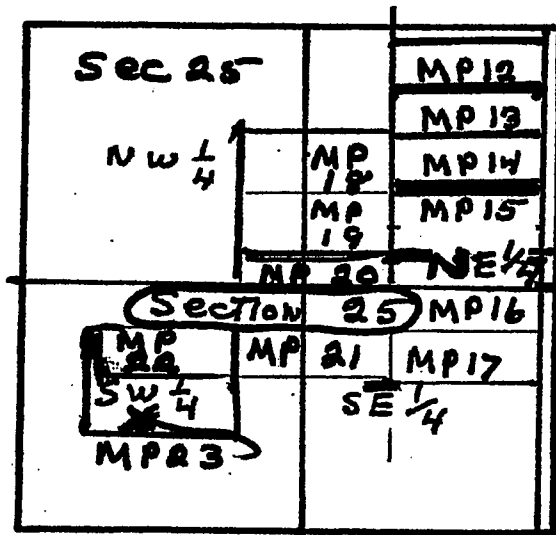 Sec 25
MP 12
MP 13
NW 1/4
MP 18
MP 14
MP 19
MP 15
MP 20
NE 1/4
Section 25
MP 16
MP 22
MP 21
MP 17
SW 1/4
SE 1/4
MP 23